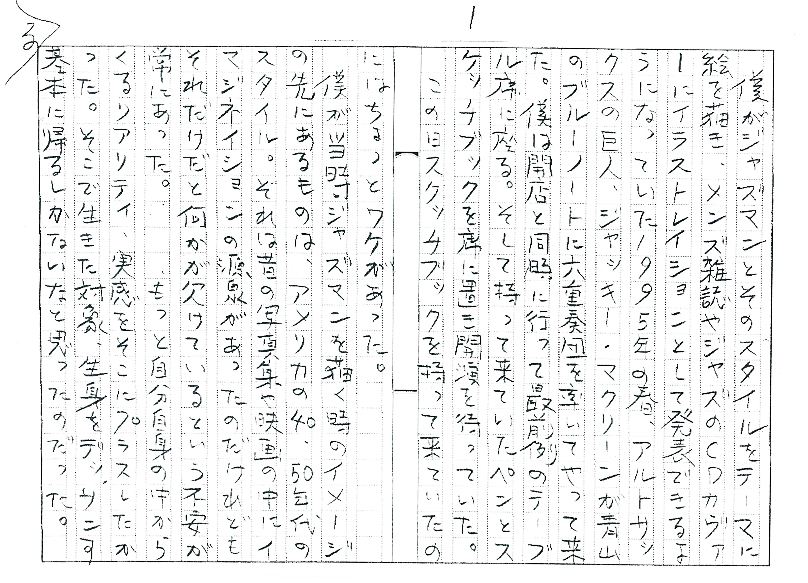 1
僕がジャズマンとそのスタイルをテーマに
絵を描き、メンズ雑誌やジャズのCDカヴァ
ーにイラストレイションとして発表できるよ
うになっていた1995年の春、アルトサッ
クスの巨人、ジャッキー・マクリーンが青山
のブルーノートに六重奏団を率いてやって来
た。僕は開店と同時に行って最前列のテーブ
ル席に座る。そして持って来ていたペンとス
ケッチブックを席に置き開演を待っていた。
この日スケッチブックを持って来ていたの
にはちょっとワケがあった。
僕が当時、ジャズマンを描く時のイメージ
の先にあるものは、アメリカの40、50年代の
スタイル。それは昔の写真集や映画の中にイ
マジネイションの源泉があったのだけれども
それだけだと何かが欠けているという不安が
常にあった。 もっと自分自身の中から
くるリアリティ、実感をそこにプラスしたか
った。そこで生きた対象、生身をデッサンす
る
基本に帰るしかないなと思ったのだった。